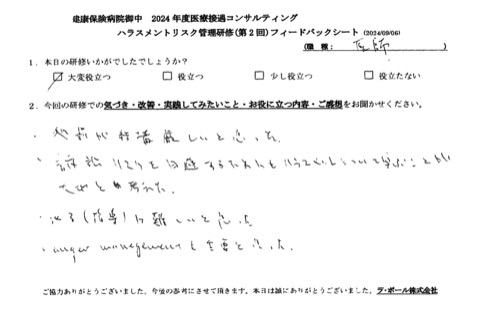 健康保険病院御中 2024年度医療接遇コンサルティング
ハラスメントリスク管理研修(第2回)フィードバックシート (2024/09/06)
(職種: 医師 )
1. 本日の研修いかがでしたでしょうか?
☑ 大変役立つ □ 役立つ □ 少し役立つ □ 役立たない
2. 今回の研修での気づき・改善・実践してみたいこと・お役に立つ内容・ご感想をお聞かせください。
・ 厳しいと思った
・訴訟リスクを回避するためにも ハラスメントについて学ぶことが
大切と考えた.
・ (指導)は難しいと思った
・anger management も重要と思った.
ご協力ありがとうございました。今後の参考にさせて頂きます。本日は誠にありがとうございました。ラ・ポール株式会社